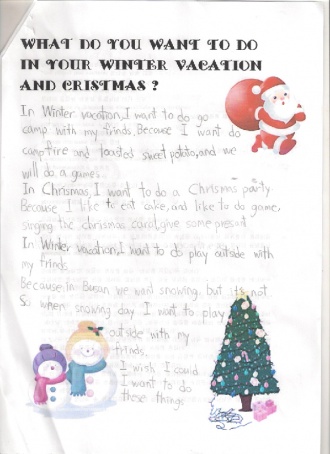 WHAT DO YOU WANT TO DO
IN YOUR WINTER VACATION
AND CRISTMAS ?
In Winter vacation, I want to do go
camp with my frinds. Because I want do
campfire and toasted sweet potato, and we
will do a games.
In Chrismas, I want to do a Chrismas party.
Because I like to eat cake, and like to do game,
singing the chrismas carol, give some present.
In Winter vacation, I want to do play outside with
my frinds.
Because in Busan we want snowing. but it's not
So when snowing day I want to play
outside with my
frinds.
I wish I could
I want to do
these things